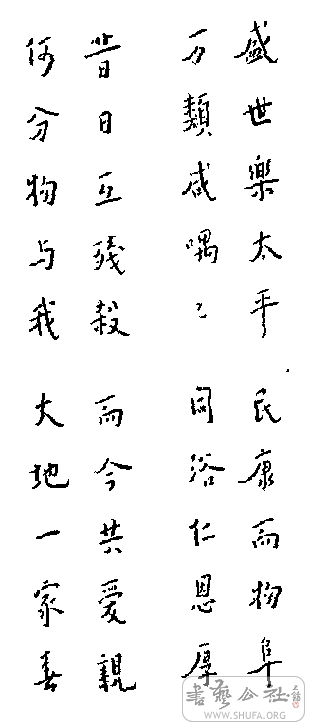 盛世樂太平 民康而物阜
万類咸喁〻 同浴仁恩厚
昔日互殘殺 而今共愛親
何分物与我 大地一家春
書藝公社
WWW.SHUFA.ORG